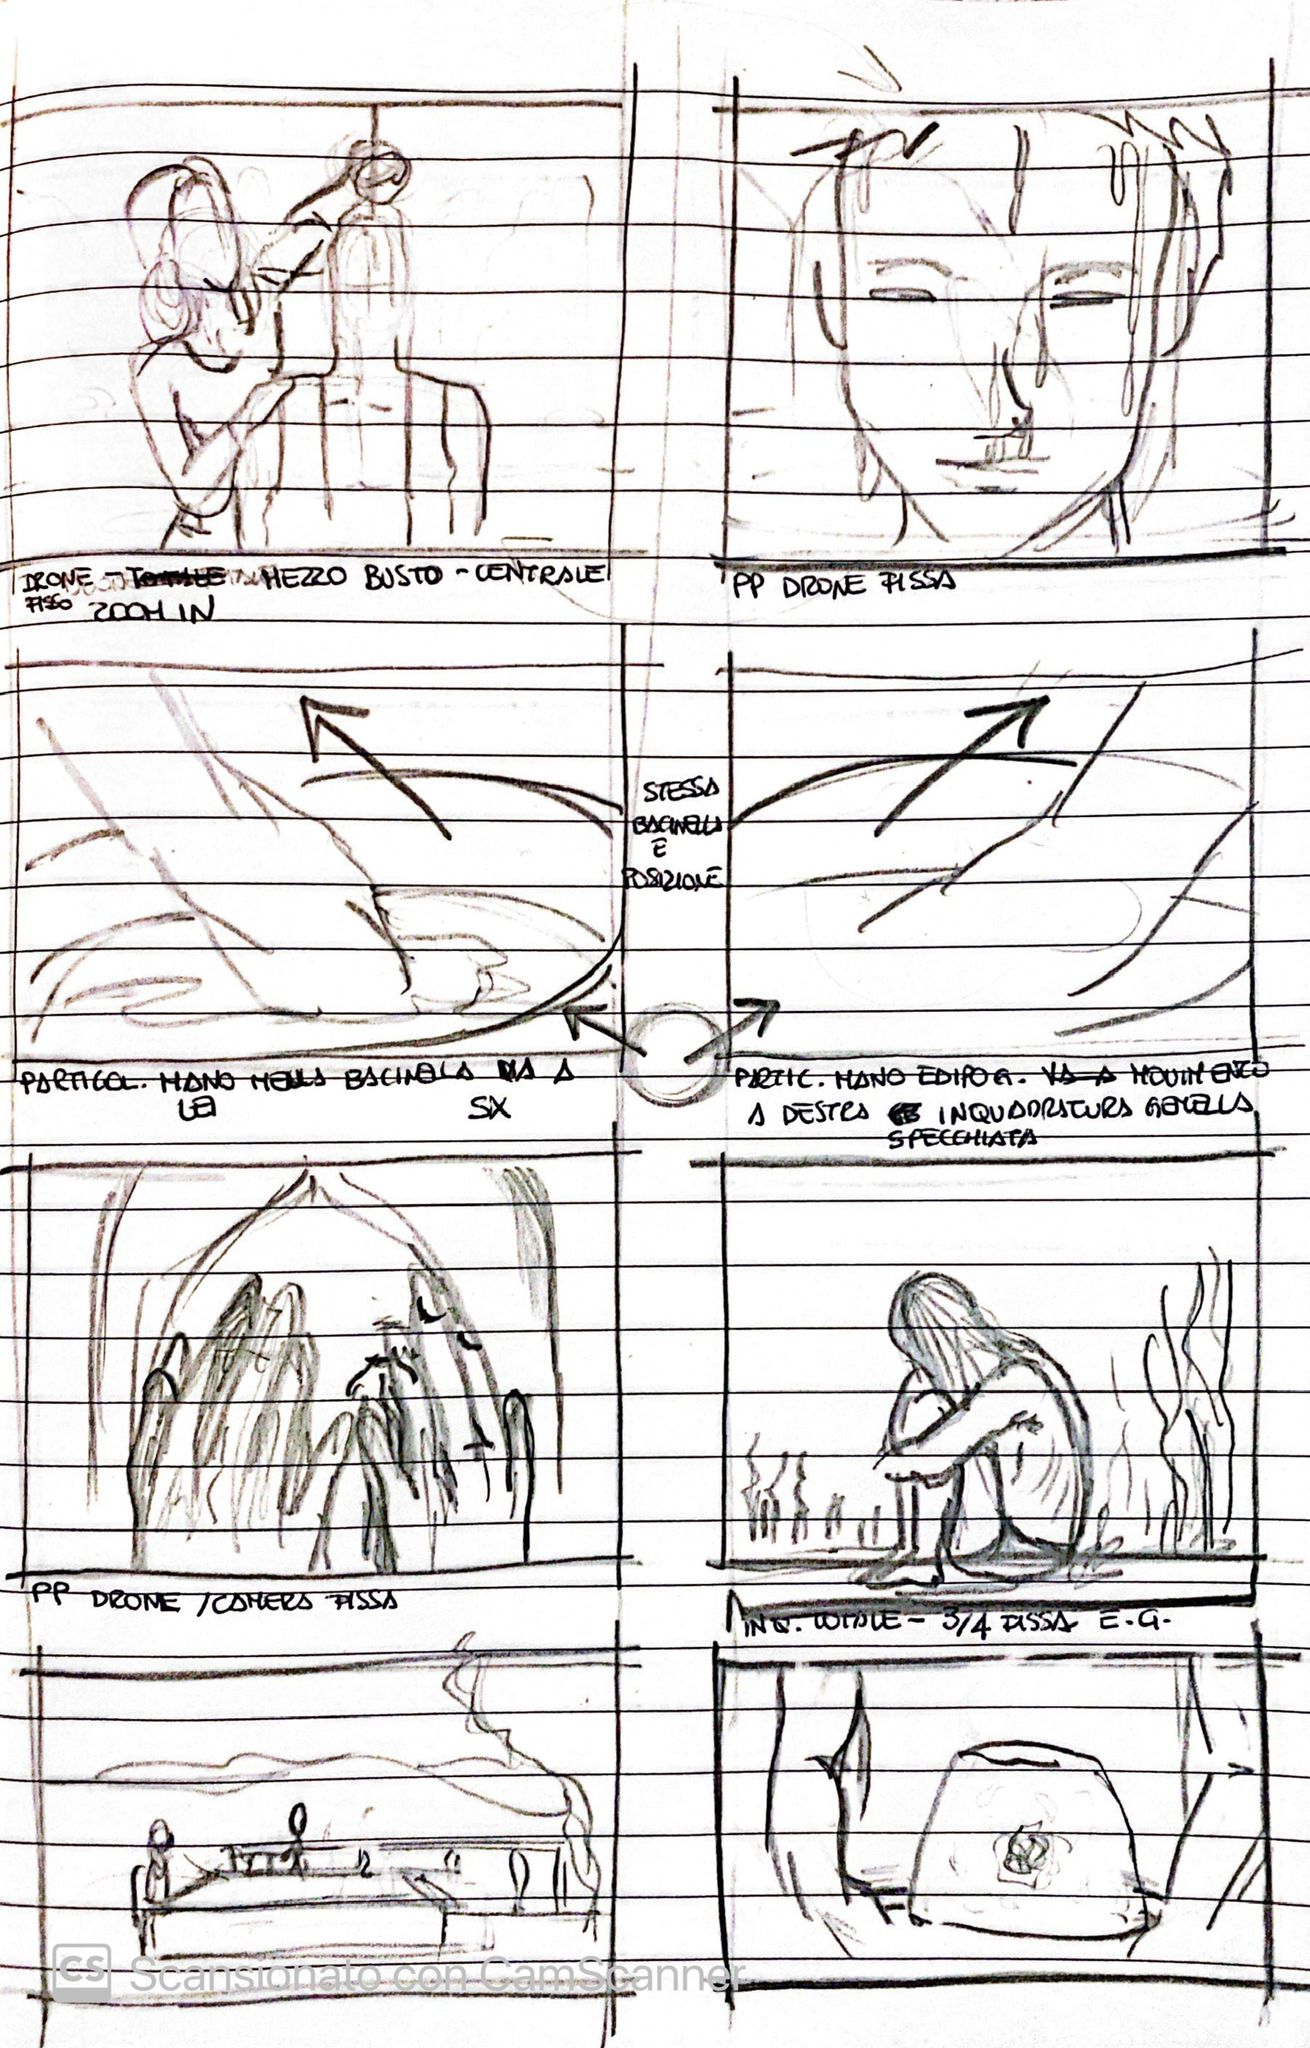 DRONE - TOTALE MEZZO BUSTO - CENTRALE
FISSO ZOOM IN
PP DRONE FISSA
STESSA
BACINELLA
E
POSIZIONE
PARTICOL. MANO NELLA BACINELLA VA A
LEI SX
PARTIC. MANO EDIPO G. VA A MOVIMENTO
A DESTRA INQUADRATURA GEMELLA
SPECCHIATA
PP DRONE / CAMERA FISSA
INQ. TOTALE - 3/4 FISSA E.G.
CS Scansionato con CamScanner